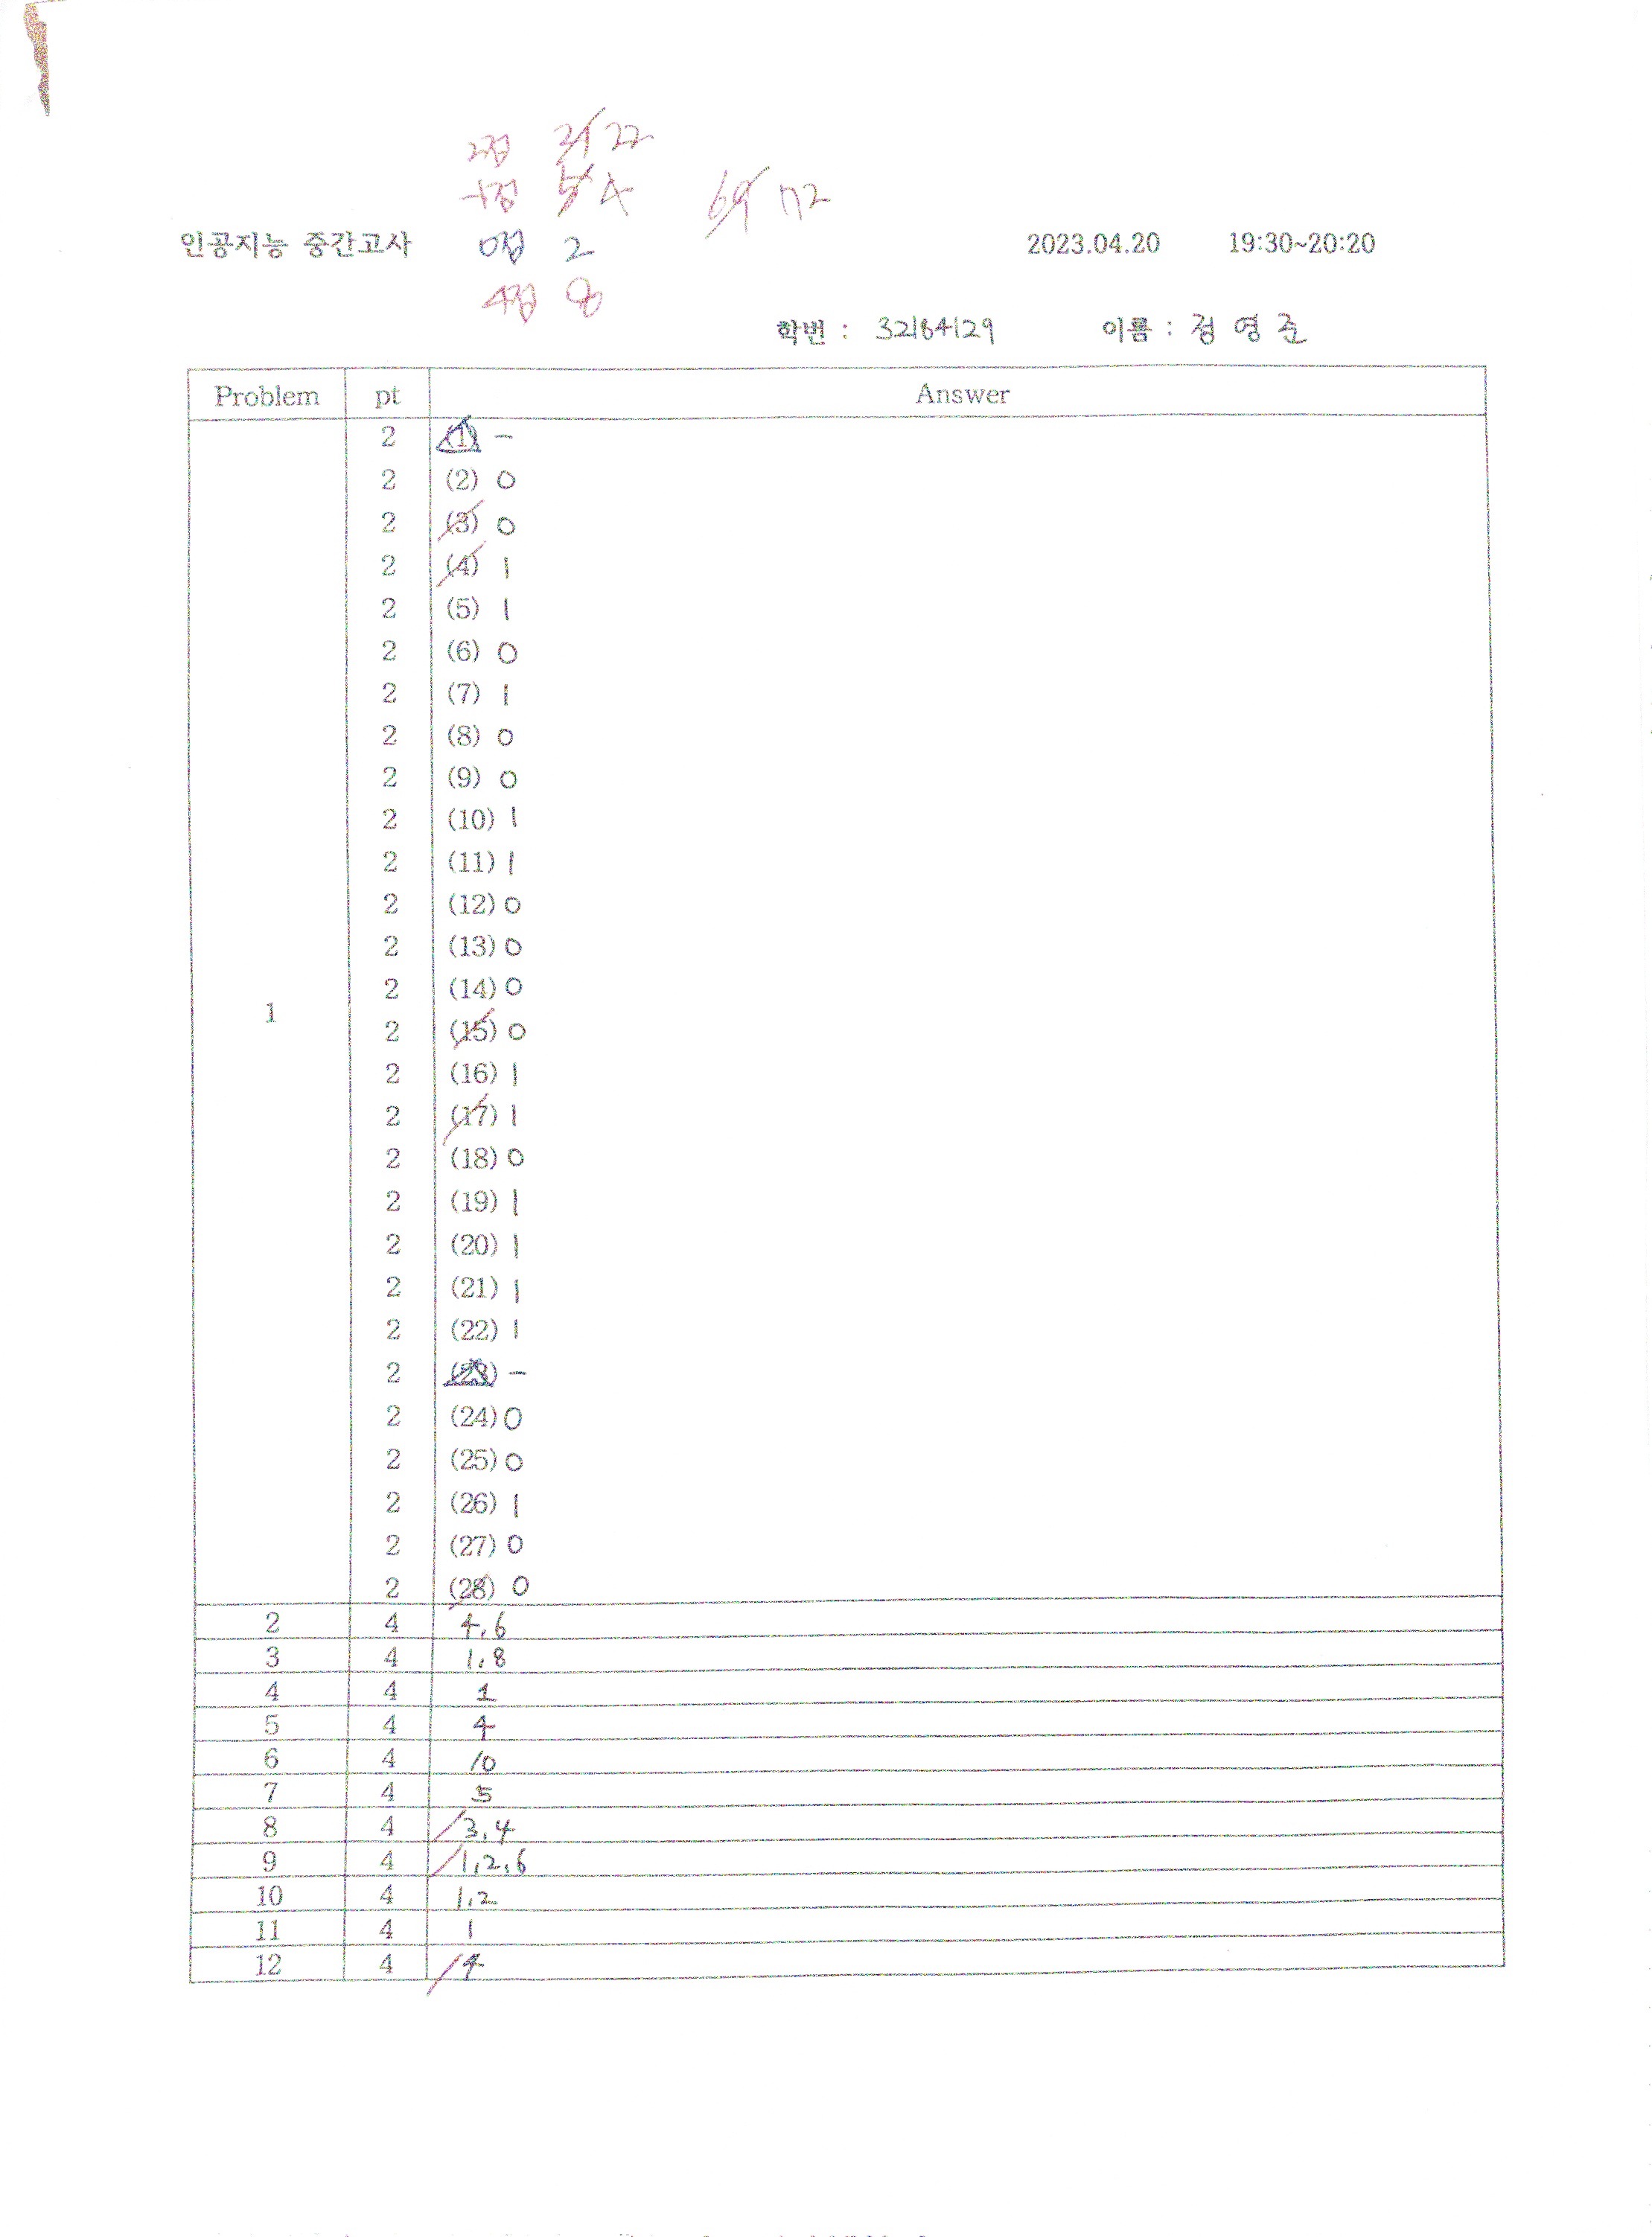 2점 21 22
-1점 5 4 69 72
인공지능 중간고사 0점 2 2023.04.20 19:30~20:20
4점 8
학번 : 32184129 이름 : 정영준
Problem pt Answer
1
2 (1) -
2 (2) 0
2 (3) 0
2 (4) 1
2 (5) 1
2 (6) 0
2 (7) 1
2 (8) 0
2 (9) 0
2 (10) 1
2 (11) 1
2 (12) 0
2 (13) 0
2 (14) 0
2 (15) 0
2 (16) 1
2 (17) 1
2 (18) 0
2 (19) 1
2 (20) 1
2 (21) 1
2 (22) 1
2 (23) -
2 (24) 0
2 (25) 0
2 (26) 1
2 (27) 0
2 (28) 0
2 4 4,6
3 4 1,8
4 4 1
5 4 4
6 4 10
7 4 5
8 4 3,4
9 4 1,2,6
10 4 1,2
11 4 1
12 4 4